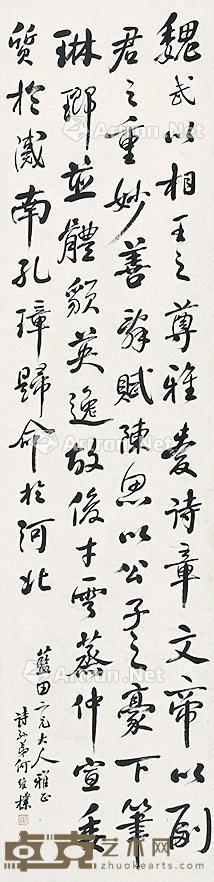 魏武以相王之尊雅愛詩章文帝以副
君之重妙善辭賦陳思以公子之豪下筆
琳瑯並體貌英逸故俊才雲蒸仲宣委
質於漢南孔璋歸命於河北
藍田六兄大人雅正
詩孫弟何維樸
Artron.Net